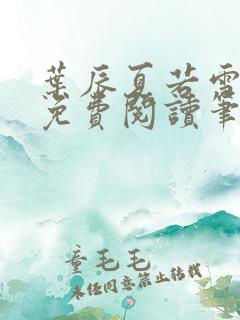 葉辰夏若雪
免費閱讀筆
童毛毛
未經同意禁止轉載